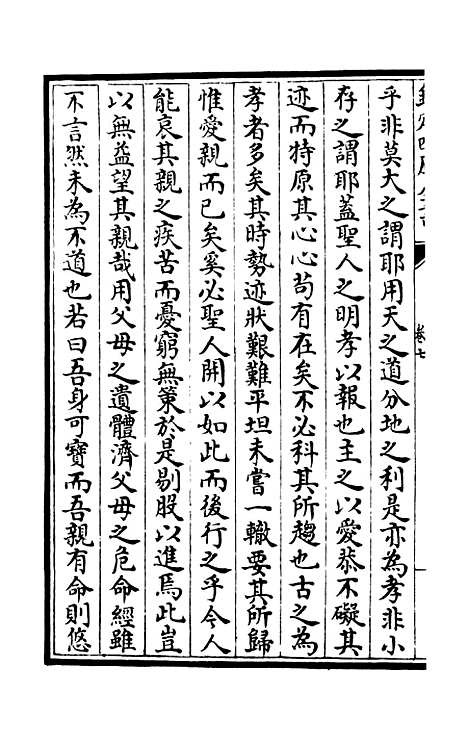 欽定四庫全書
卷七
乎非莫大之謂耶用天之道分地之利是亦為孝非小
存之謂耶蓋聖人之明孝以報也主之以愛恭不礙其
迹而特原其心心苟有在矣不必科其所趨也古之為
孝者多矣其時勢迹狀艱難平坦未嘗一轍要其所歸
惟愛親而已矣奚必聖人開以如此而後行之乎今人
能哀其親之疾苦而憂窮無策於是剔股以進焉此豈
以無益望其親哉用父母之遺體濟父母之危命經雖
不言然未為不道也若曰吾身可寶而吾親有命則悠